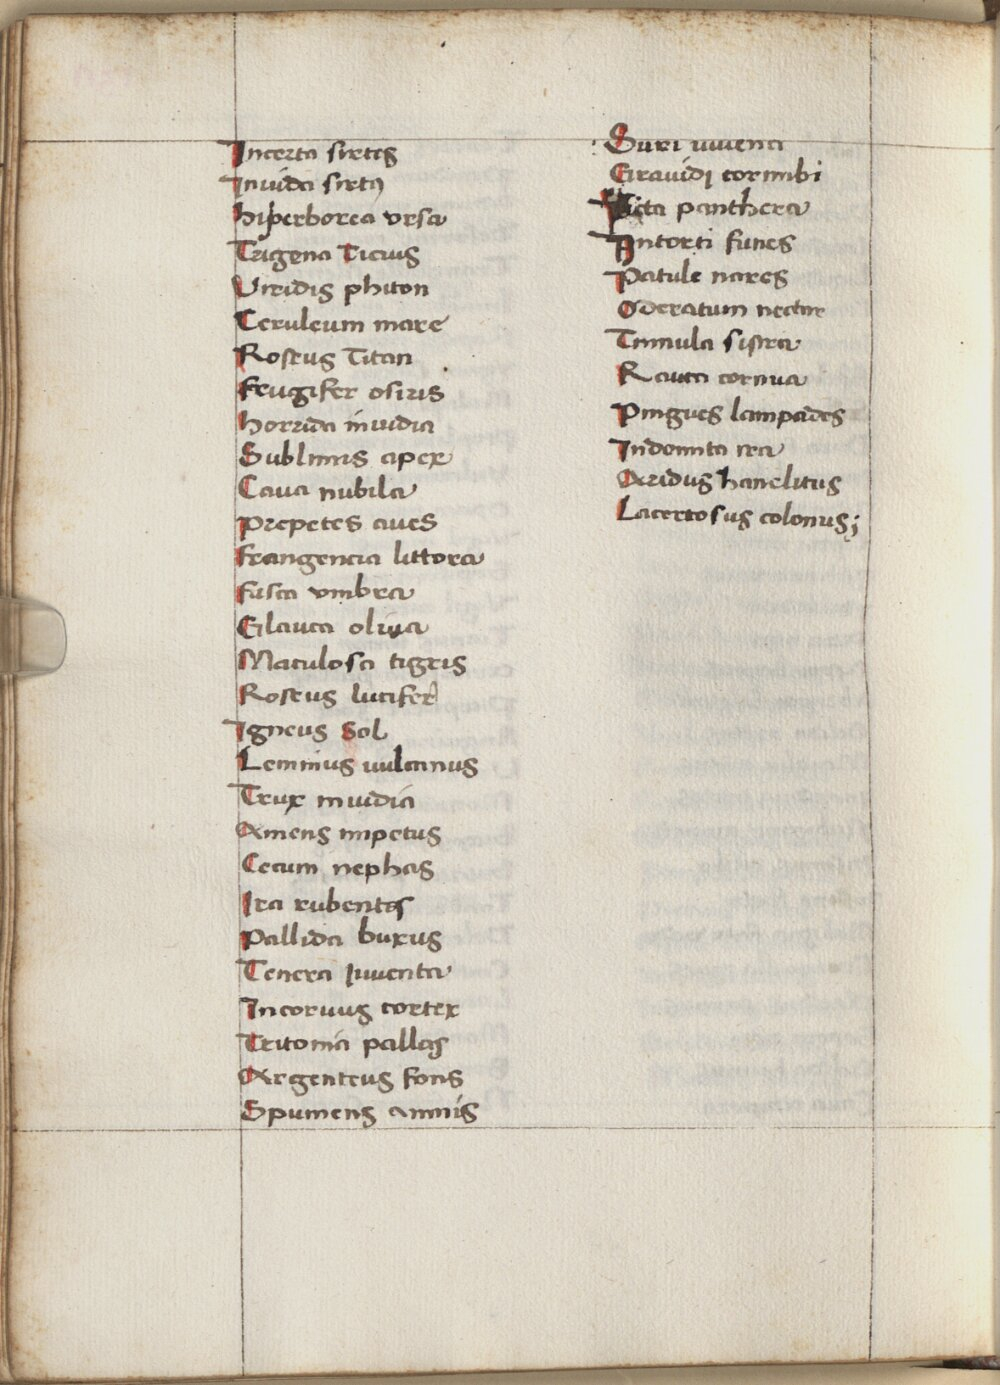 Incerta sirtes
Inuida sirtis
hiperborea vrsa
Trigena Ticius
Viridis phiton
Ceruleum mare
Roseus Titan
Frugifer osiris
horrida inuidia
Sublimis apex
Caua nubila
Prepetes aues
Frangencia littora
Fusca vmbra
Glauca oliua
Maculosa tigris
Roseus lucifer
Igneus Sol
Lemnius uulcanus
Trux inuidia
Amens impetus
Cecum nephas
Ira rubentes
Pallida buxus
Tenera Iuuenta
Incoruus cortex
Tritonia pallas
Argenteus fons
Spumens amnis
Duri iuuenci
Grauidi corimbi
Picta panthera
Intorti funes
Patule nares
Oderatum nectar
Tinnula sistra
Rauca cornua
Pingues lampades
Indomita ira
Aridus hanelitus
Lacertosus colonus;